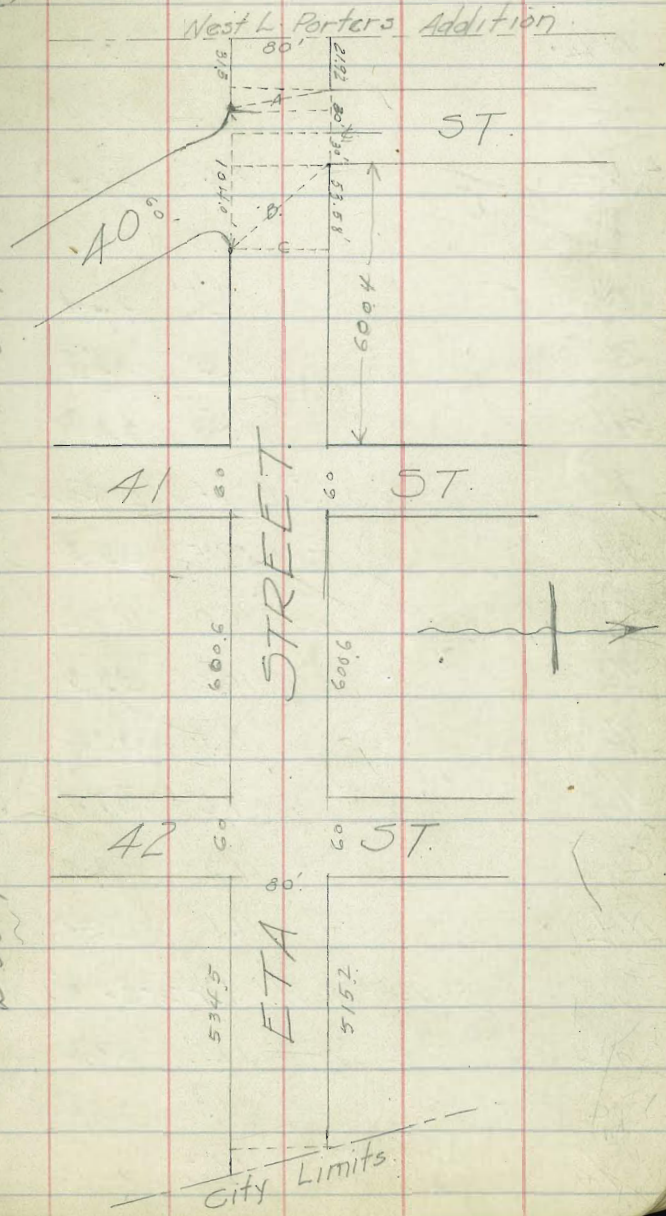 West L. Porters Addition
80'
31.8
21.92
A
20'
30'
ST.
104.0
53.58'
40
60
B.
C
600.4
41
60
60
ST.
STREET.
600.6
600.6
42
60
60
ST.
80'.
ETA
534.5
515.2
City Limits.